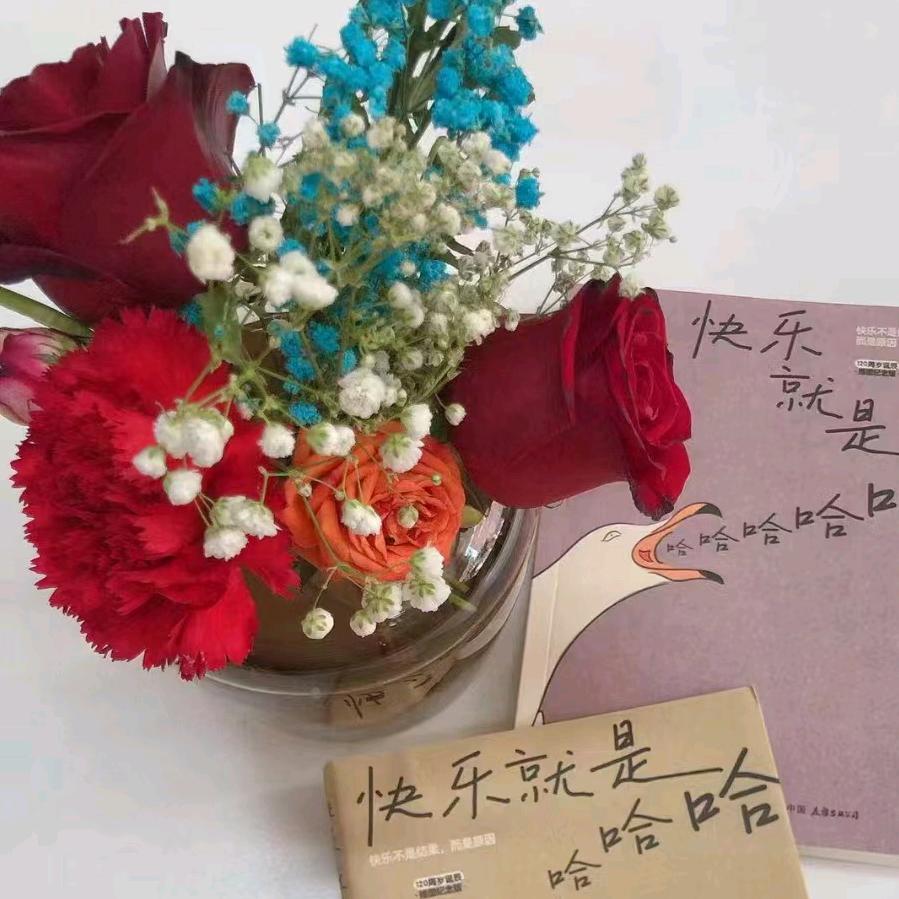 快乐
就
是
快乐不是
而是原因
120周岁诞辰
插图纪念版
哈哈哈哈
中国友谊出版公司
快乐就是
哈哈哈
快乐不是结果，而是原因
120周岁诞辰
插图纪念版